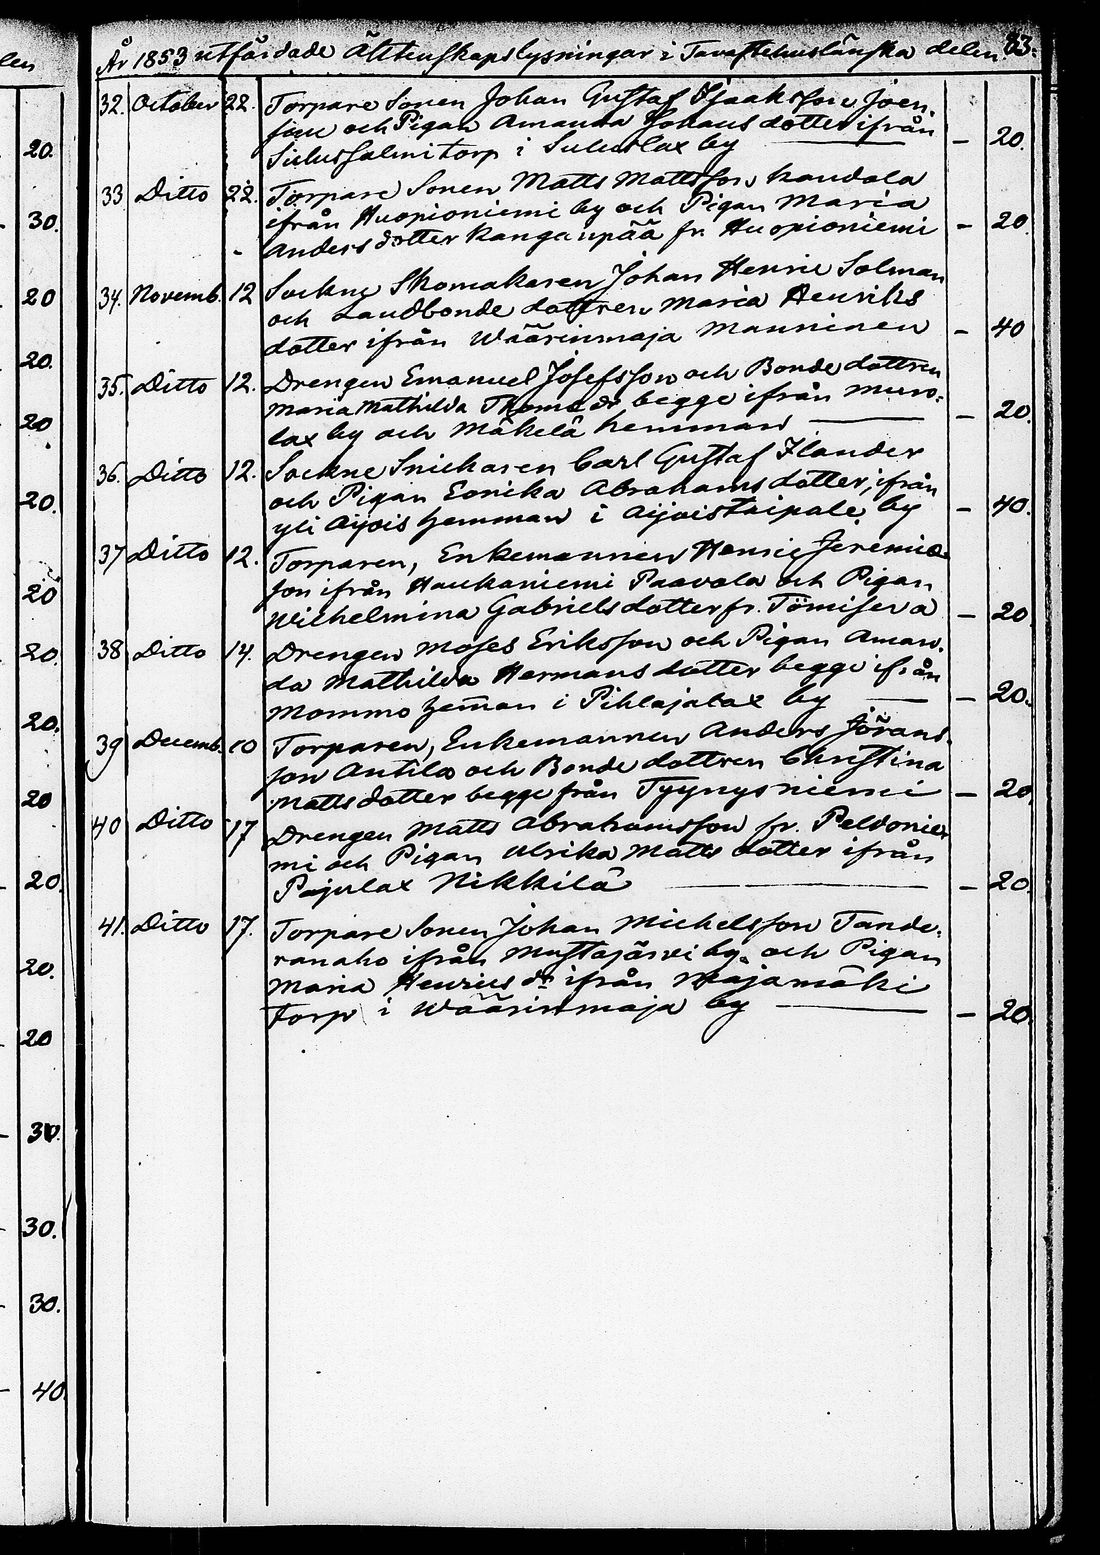 len
År 1853 utfärdade Äktenskapslysningar i Tavastehuslänska delen 83.
32. October 22. Torpare Sonen Johan Gustaf Isaaksson Joen-
suu och Pigan Amanda Johansdotter ifrån
torp i by — 20.
33 Ditto 22. Torpare Sonen Matts Mattsson Kandola
ifrån Huopioniemi by och Pigan Maria
Andersdotter Kanganpää fr. Huopioniemi — 20
34. Novemb. 12 Sockne Skomakaren Johan Henric Solman
och Landbonde dottren Maria Henriks
dotter ifrån Wäärinmaja Manninen — 40
35. Ditto 12. Drengen Emanuel Josefsson och Bonde dottren
Maria Mathilda Thome dr begge ifrån Muro-
lax by och Mäkelä hemman — 20.
36. Ditto 12. Sockne Snickaren Carl Gustaf Ilander
och Pigan Eorika Abrahamsdotter, ifrån
yli Äijöis hemman i Äijöistaipale by — 40.
37 Ditto 12. Torparen, Enkemannen Henric Jeremias-
son ifrån Haukaniemi Paavola och Pigan
Wilhelmina Gabrielsdotter fr. Tömiseva — 20
38 Ditto 14. Drengen Moses Eriksson och Pigan Aman-
da Mathilda Hermansdotter begge ifrån
Mommo hem̄an i Pihlajalax by — 20.
39 Decemb. 10 Torparen, Enkemannen Anders Jörans-
son Antila och Bonde dottren Christina
Mattsdotter begge från Tyynysniemi — 20.
40 Ditto 17 Drengen Matts Abrahamsson fr. Peldonie-
mi och Pigan Ulrika Matts dotter ifrån
Pajulax Nikkilä — 20.
41. Ditto 17. Torpare Sonen Johan Michelsson Tande-
ranaho ifrån Mustajärvi by och Pigan
Maria Henrics dr ifrån Majamäki
Torp i Wäärinmaja by — 20.
20.
30.
20
20.
20
20.
20
20.
20.
20
20.
20.
20
30.
30.
30.
40.